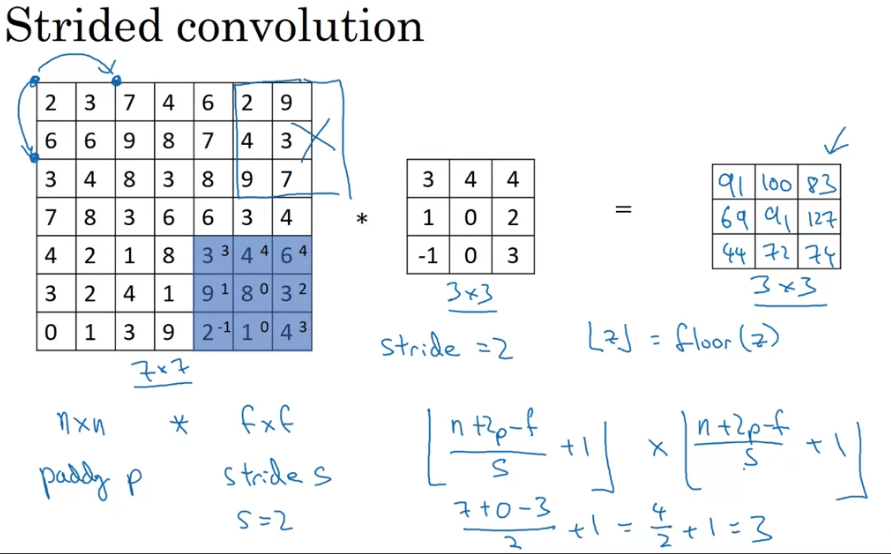 Strided convolution
2 3 7 4 6 2 9
6 6 9 8 7 4 3
3 4 8 3 8 9 7
7 8 3 6 6 3 4
4 2 1 8 3 3 4 4 6 4
3 2 4 1 9 1 8 0 3 2
0 1 3 9 2 -1 1 0 4 3
7×7
*
3 4 4
1 0 2
-1 0 3
3×3
stride = 2
=
91 100 83
69 91 127
44 72 74
3×3
⌊z⌋ = floor(z)
n×n * f×f
padding p stride s
s=2
⌊(n+2p-f)/s + 1⌋ × ⌊(n+2p-f)/s + 1⌋
(7+0-3)/2 + 1 = 4/2 + 1 = 3